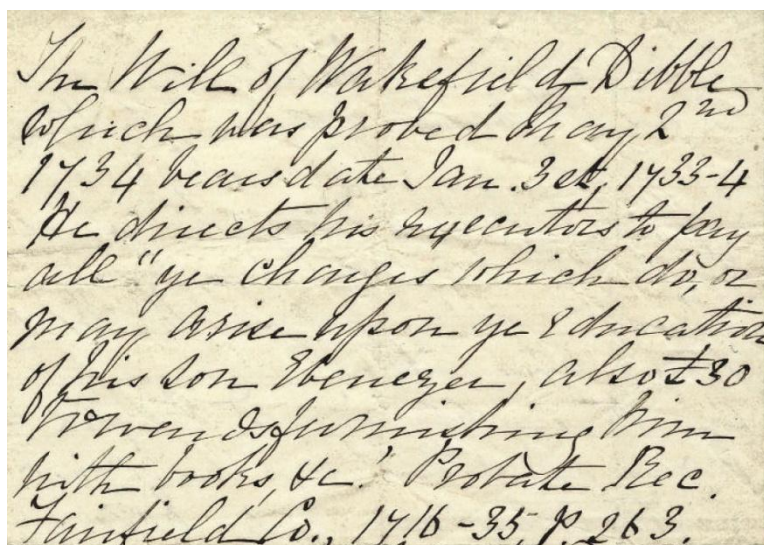 The Will of Wakefield Dibble
which was proved May 2nd
1734 bears date Jan. 3et, 1733-4
He directs his executors to pay
all "ye charges which do, or
may arise upon ye education
of his son Ebenezer, also £30
towards furnishing him
with books, &c.' Probate Rec.
Fairfield Co., 1716-35, p. 263.